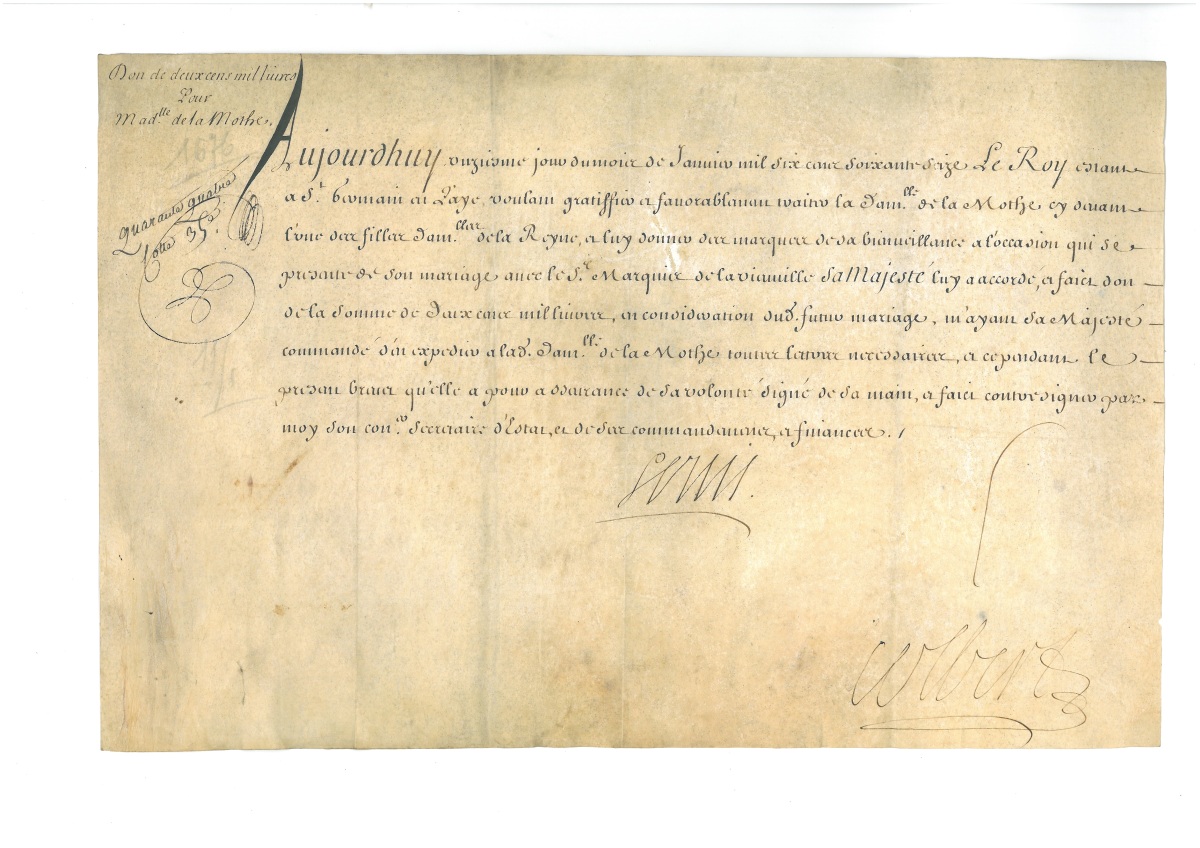 Don de deux cens mil livres
Pour
Mad.lle de la Mothe.
1676
quarante quatre
Cotte 35e.
Aujourdhuy unziesme jour du mois de Janvier mil six cens soixante seize Le Roy estant
a St. Germain en Laye, voulant gratiffier et favorablement traiter la Dam.lle de la Mothe cy devant
l'une des filles Dam.lles de la Reyne, et luy donner des marques de sa bienveillance a l'occasion qui se
presente de son mariage avec le Sr. Marquis de la vieuville Sa Majesté luy a accordé, et faict don
de la somme de Deux cens mil livres, en consideration dud. futur mariage, m'ayant Sa Majesté
commandé d'en expedier a lad. Dam.lle de la Mothe toutes lettres necessaires, et cependant le
present brevet qu'elle a pour assurance de sa volonté signé de sa main, et faict contresigner par
moy son con.er Secretaire d'Estat, et de ses commandemens, et finances. /
Louis.
Colbert